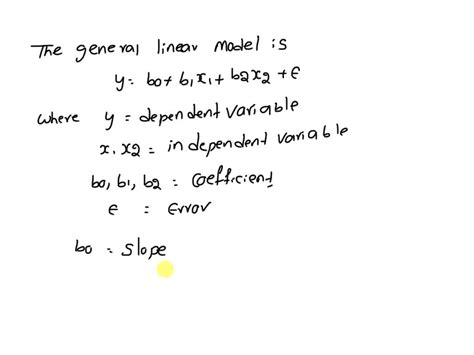 The general linear model is
y = b0 + b1x1 + b2x2 + ϵ
where y = dependent variable
x. x2 = independent variable
b0, b1, b2 = Coefficient
ϵ = Error
b0 = Slope